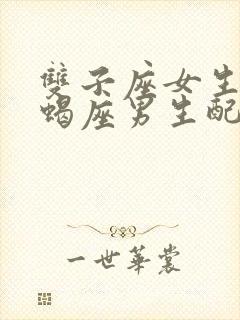 雙子座女生
蝎座男生配
一世華裳